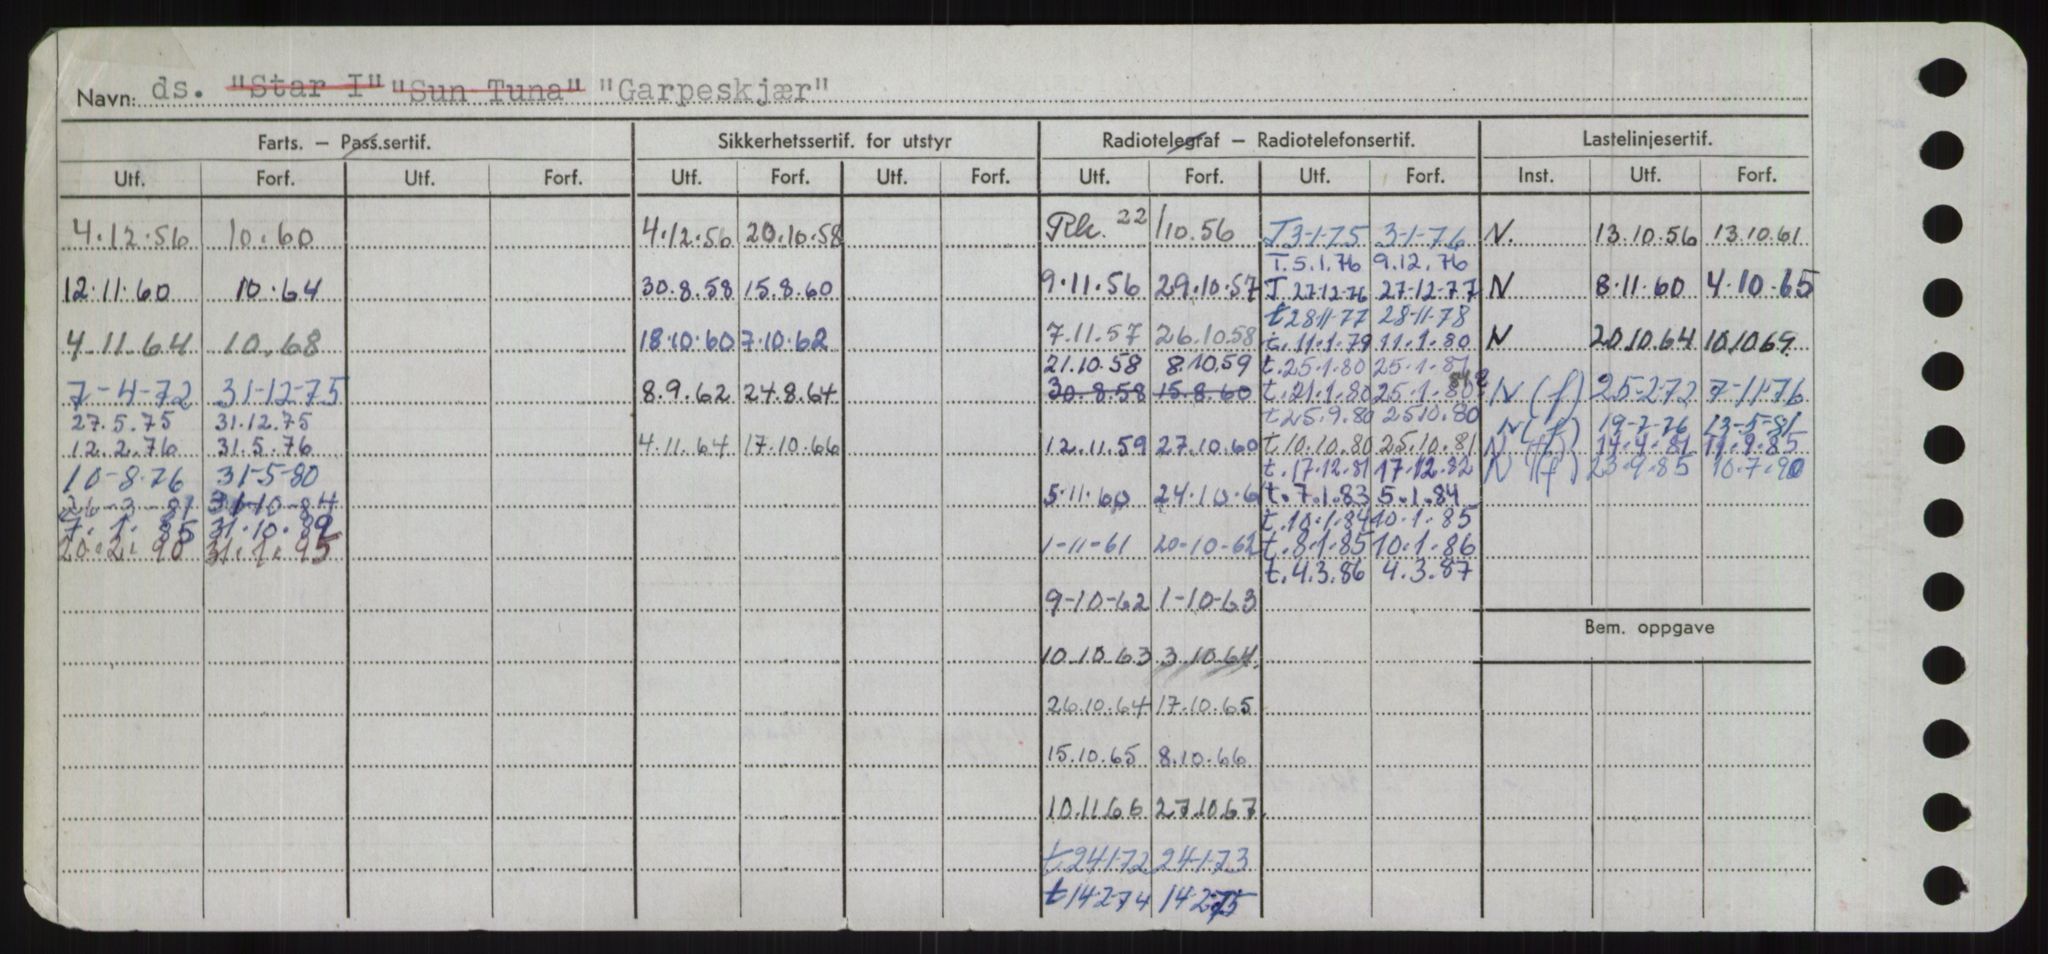 Navn: ds. "Star I" "Sun Tuna" "Garpeskjær"
Farts. — Pass.sertif. Sikkerhetssertif. for utstyr Radiotelegraf — Radiotelefonsertif. Lastelinjesertif.
Utf. Forf. Utf. Forf. Utf. Forf. Utf. Forf. Utf. Forf. Utf. Forf. Inst. Utf. Forf.
4.12.56 10.60 4.12.56 20.10.58 Rk. 22/10.56 T 3-1-75 3-1-76 N. 13.10.56 13.10.61
T. 5.1.76 9.12.76
12.11.60 10.64 30.8.58 15.8.60 9.11.56 29.10.57 T 27-12-76 27-12-77 N 8.11.60 4.10.65
t 28-11-77 28-11-78
4.11.64 10.68 18.10.60 7.10.62 7.11.57 26.10.58 t. 11.1.79 11.1.80 N 20.10.64 10.10.69
21.10.58 8.10.59 t. 25.1.80 25.1.81
7-4-72 31-12-75 8.9.62 24.8.64 30.8.58 15.8.60 t. 21.1.80 25.1.80 N (f) 25-2-72 7-11-76
27.5.75 31.12.75 t 25.9.80 25.10.80 N (f) 19-7-76 13-5-81
12.2.76 31.5.76 4.11.64 17.10.66 12.11.59 27.10.60 t. 10.10.80 25.10.81 N (f) 14.4.81 11.9.85
10-8-76 31-5-80 t. 17.12.81 17.12.82 N (f) 23-9-85 10.7.90
26-3-81 31-10-84 5.11.60 24.10.6 t. 7.1.83 5.1.84
7.1.85 31.10.89 t. 10.1.84 10.1.85
20.2.90 31.1.95 1-11-61 20-10-62 t. 8.1.85 10.1.86
t. 4.3.86 4.3.87
9-10-62 1-10-63
Bem. oppgave
10.10.63 3.10.64
26.10.64 17.10.65
15.10.65 8.10.66
10.11.66 27.10.67
t 24-1-72 24-1-73
t 14.2.74 14.2.75